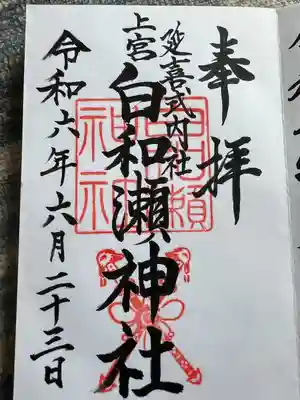 奉拝
延喜式内社
上宮
白和瀬神社
令和六年六月二十三日